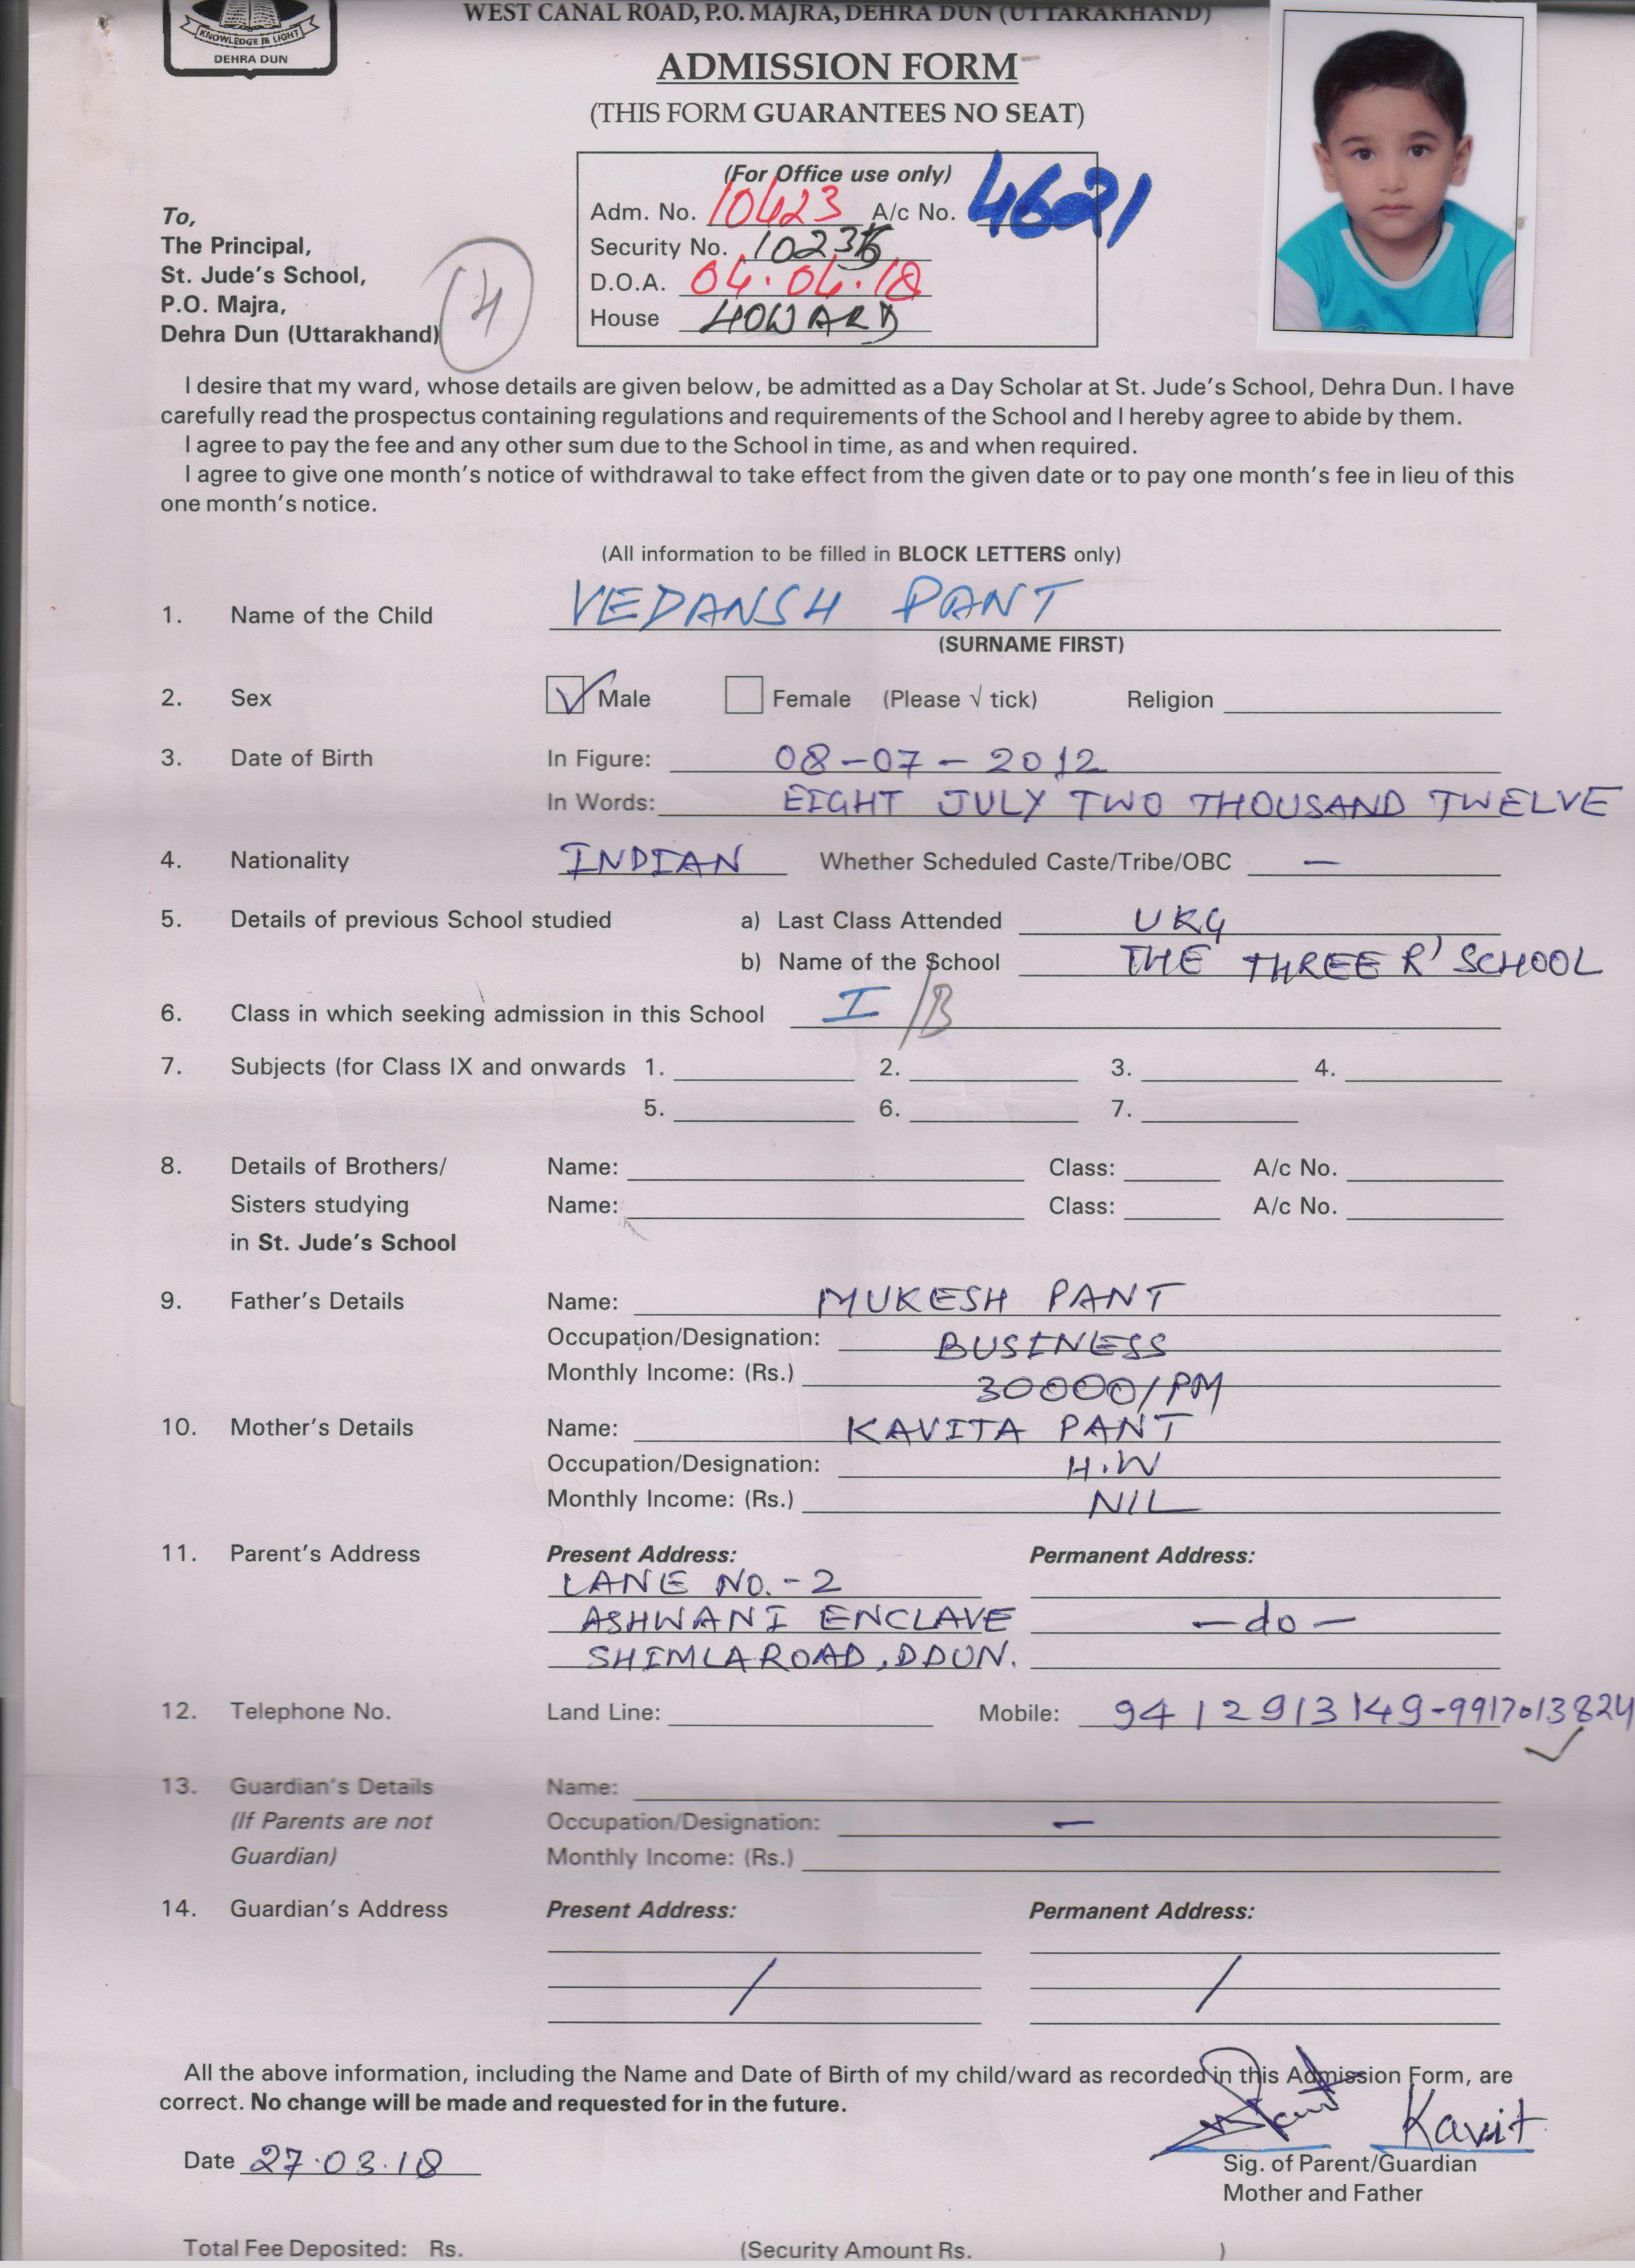 KNOWLEDGE IS LIGHT
DEHRA DUN
WEST CANAL ROAD, P.O. MAJRA, DEHRA DUN (UTTARAKHAND)
ADMISSION FORM
(THIS FORM GUARANTEES NO SEAT)
(For Office use only)
Adm. No. 10423 A/c No. 4621
Security No.
D.O.A. 04.04.18
House HOWARD
To,
The Principal,
St. Jude's School,
P.O. Majra,
Dehra Dun (Uttarakhand)
I desire that my ward, whose details are given below, be admitted as a Day Scholar at St. Jude's School, Dehra Dun. I have
carefully read the prospectus containing regulations and requirements of the School and I hereby agree to abide by them.
I agree to pay the fee and any other sum due to the School in time, as and when required.
I agree to give one month's notice of withdrawal to take effect from the given date or to pay one month's fee in lieu of this
one month's notice.
(All information to be filled in BLOCK LETTERS only)
1. Name of the Child VEDANSH PANT
(SURNAME FIRST)
2. Sex Male Female (Please √ tick) Religion
3. Date of Birth In Figure: 08-07-2012
In Words: EIGHT JULY TWO THOUSAND TWELVE
4. Nationality INDIAN Whether Scheduled Caste/Tribe/OBC —
5. Details of previous School studied a) Last Class Attended UKG
b) Name of the School THE THREE R' SCHOOL
6. Class in which seeking admission in this School I /B
7. Subjects (for Class IX and onwards 1. 2. 3. 4.
5. 6. 7.
8. Details of Brothers/ Name: Class: A/c No.
Sisters studying Name: Class: A/c No.
in St. Jude's School
9. Father's Details Name: MUKESH PANT
Occupation/Designation: BUSINESS
Monthly Income: (Rs.) 30000/PM
10. Mother's Details Name: KAVITA PANT
Occupation/Designation: H.W
Monthly Income: (Rs.) NIL
11. Parent's Address Present Address: Permanent Address:
LANE NO.-2
ASHWANI ENCLAVE —do—
SHIMLA ROAD, DDUN.
12. Telephone No. Land Line: Mobile: 9412913149-9917013824
13. Guardian's Details Name:
(If Parents are not Occupation/Designation: —
Guardian) Monthly Income: (Rs.)
14. Guardian's Address Present Address: Permanent Address:
/ /
All the above information, including the Name and Date of Birth of my child/ward as recorded in this Admission Form, are
correct. No change will be made and requested for in the future.
Kavit
Date 27.03.18
Sig. of Parent/Guardian
Mother and Father
Total Fee Deposited: Rs. (Security Amount Rs. )